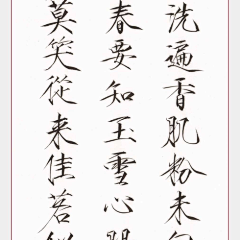 洗遍香肌粉未
春要知玉雪心
莫笑從来佳茗